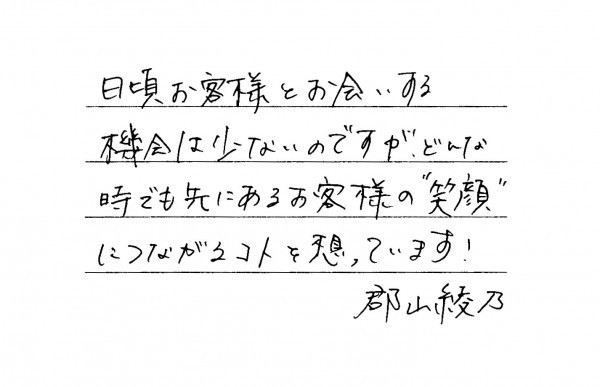 日頃お客様とお会いする
機会は少ないのですが、どんな
時でも先にあるお客様の"笑顔"
につながるコトを想っています！
郡山綾乃